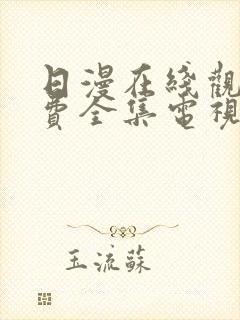 日漫在綫觀
費全集電視
玉流蘇